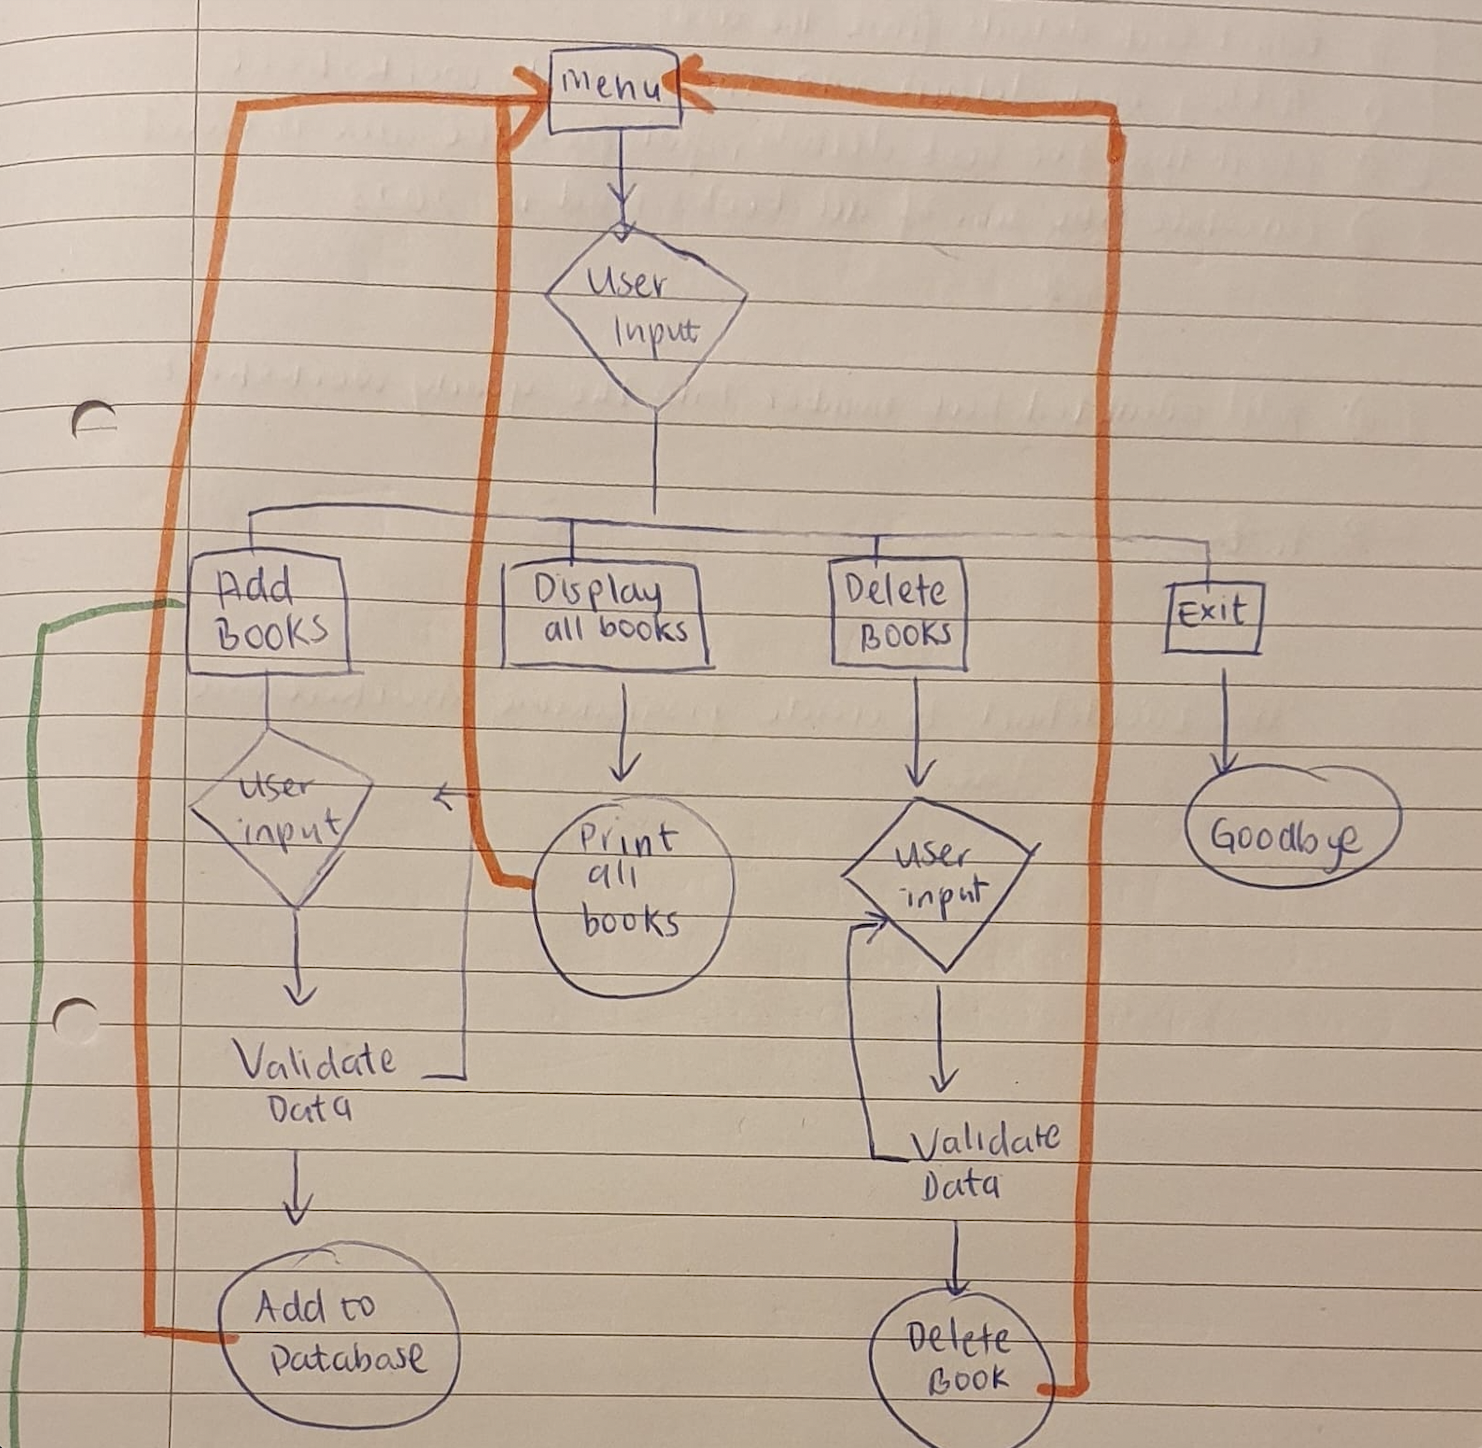 menu
User
Input
Add
Books
Display
all books
Delete
Books
Exit
user
input
Print
all
books
user
input
Goodbye
Validate
Data
Validate
Data
Add to
Database
Delete
Book